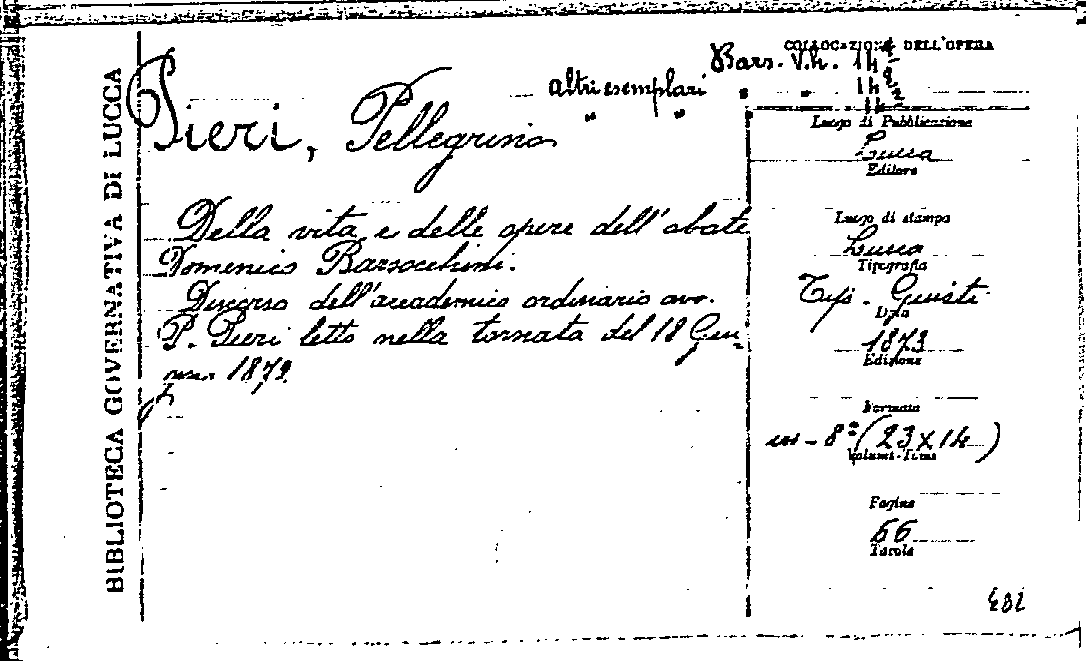 BIBLIOTECA GOVERNATIVA DI LUCCA
COLLOCAZIONE DELL'OPERA
Bars. V.h. 14
altri esemplari " " 14
" " 14
Pieri, Pellegrino
Della vita e delle opere dell'abate
Domenico Barsocchini.
Discorso dell'accademico ordinario avv.
P. Pieri letto nella tornata del 18 Gen-
naio 1873.
Luogo di Pubblicazione
Lucca
Editore
Luogo di stampa
Lucca
Tipografia
Tip. Giusti
Data
1873
Edizione
Formato
in-8º (23x14)
Volumi-Tomi
Pagine
66
Tavole